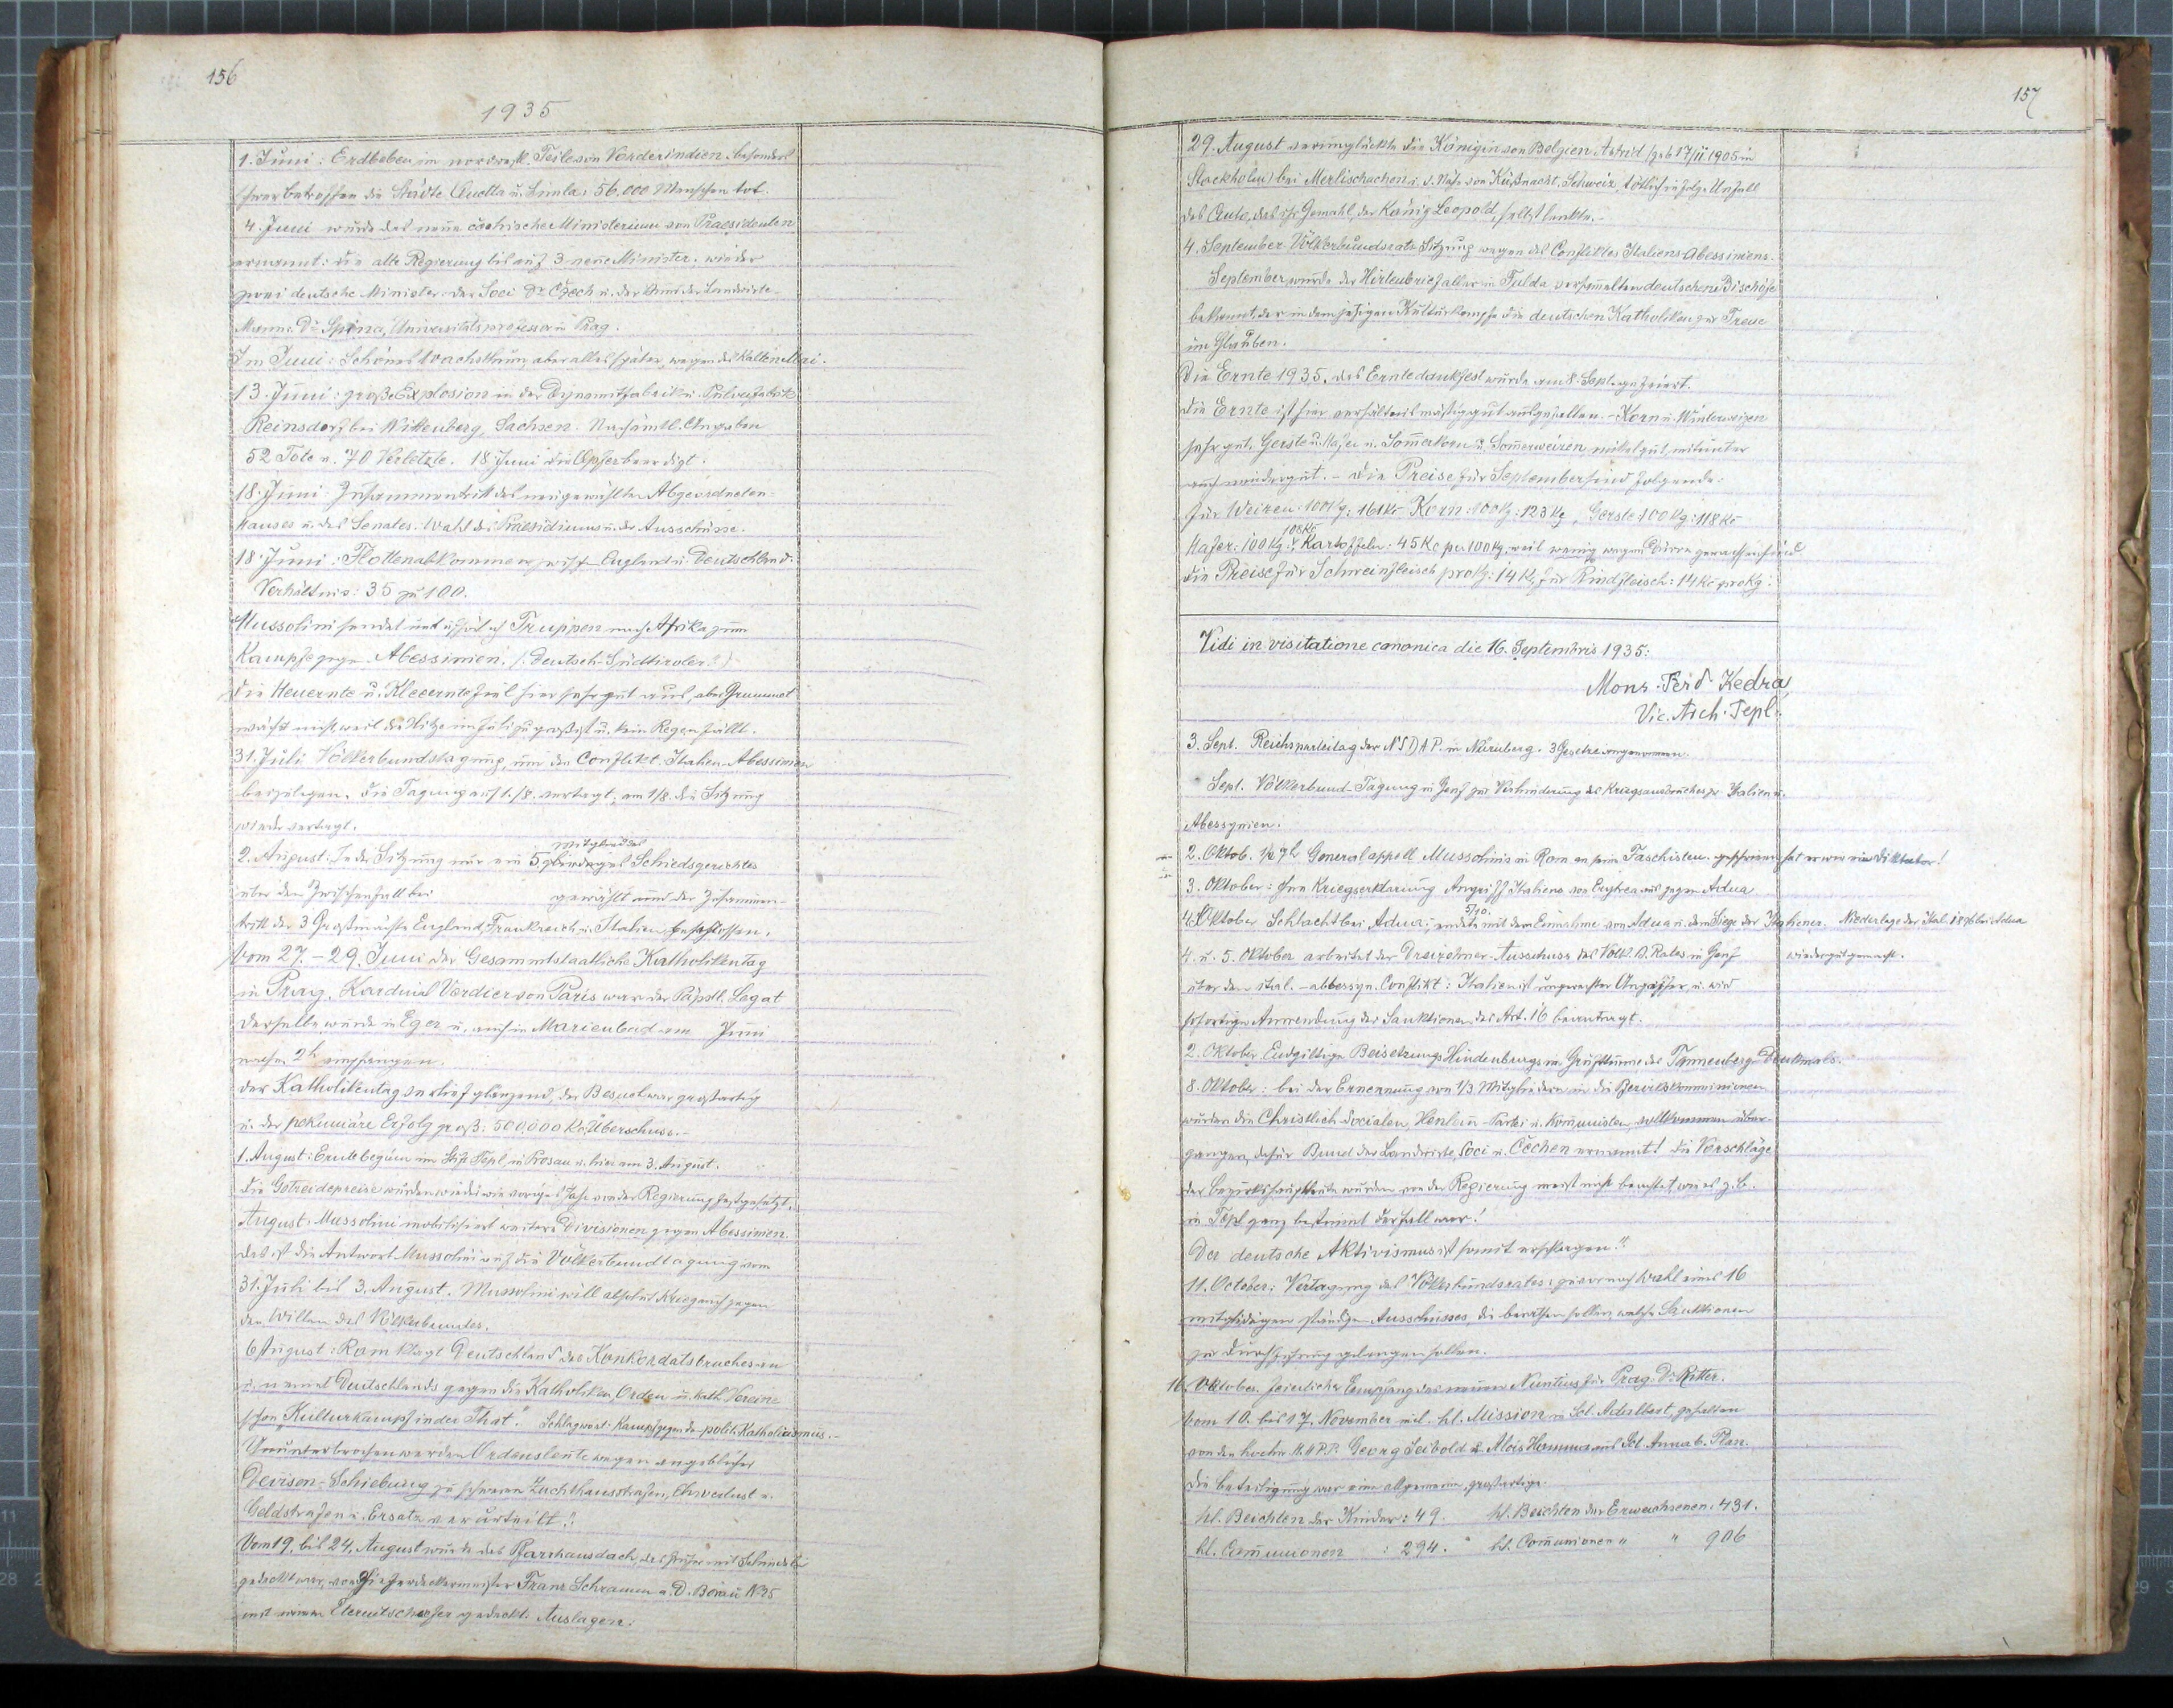 156
1935
1. Juni: Erdbeben im nordwestl. Teile von Vorderindien. besonders
schwer betroffen die Städte Quetta u. Simla: 56.000 Menschen tot.
4. Juni wurde das neue čechische Ministerium von Praesidenten
ernannt: die alte Regierung bis auf 3 neue Minister; wieder
zwei deutsche Minister: der Soci Dr Czech u. der Bund der Landwirte-
Mann: Dr Spina, Universitätsprofessor in Prag.
Im Juni: Schönes Wachsthum, aber alles später, wegen des kalten Mai.
13. Juni: große Explosion in der Dynamitfabrik u. Pulverfabrik
Reinsdorf bei Wittenberg, Sachsen. Nach amtl. Angaben
52 Tote u. 70 Verletzte. 18. Juni die Opfer beerdigt.
18. Juni Zusammentritt des neugewählten Abgeordneten-
hauses u. des Senates. Wahl des Praesidiums u. der Ausschüsse.
18. Juni: Flottenabkommen zwisch. England u. Deutschland:
Verhältnis: 35 zu 100.
Mussolini sendet Truppen nach Afrika zum
Kampfe gegen Abessinien. (: Deutsch-Südtiroler!:)
Die Heuernte u. Kleeernte fiel hier sehr gut aus, aber Grummet
wächst nicht, weil die Hitze im Juli zu groß ist u. kein Regen fällt.
31. Juli Völkerbundstagung, um den Conflikt Italien-Abessinien
beizulegen. Die Tagung auf 1./8. vertagt, am 1/8. die Sitzung
wieder vertagt.
2. August: In der Sitzung nur ein 5 gliedriges Schiedsgerichtes
über den Zwischenfall bei gewählt und der Zusammen-
tritt der 3 Großmächte England, Frankreich u. Italien beschlossen.
Vom 27.-29. Juni der Gesammtstaatliche Katholikentag
in Prag. Kardinal Verdier von Paris war der Päpstl. Legat
derselbe wurde in Eger u. auch in Marienbad am Juni
nachm. 2h empfangen.
Der Katholikentag verlief glänzend, der Besuch war großartig
u. der pekuniäre Erfolg groß: 500.000 Kč Überschuss.-
1. August: Erntebeginn im Stift Tepl, in Prosau u. hier am 3. August.
Die Getreidepreise wurden wieder wie voriges Jahr von der Regierung festgesetzt.
August: Mussolini mobilisiert weitere Divisionen gegen Abessinien.
das ist die Antwort Mussolini auf die Völkerbundtagung vom
31. Juli bis 3. August. Mussolini will absolut Krieg auch gegen
den Willen des Völkerbundes.
6. August: Rom klagt Deutschland des Konkordatsbruches an
Deutschlands gegen die Katholiken, Orden u. kath. Vereine
schon "Kulturkampf in der That". Schlagwort: Kampf gegen den polit. Katholizismus.-
Ununterbrochen werden Ordensleute wegen angeblicher
Devisen-Schiebung zu schweren Zuchthausstrafen, Ehrverlust u.
Geldstrafen u. Ersatz verurteilt!
Vom 19. bis 24. August wurde das Pfarrhausdach, das früher mit Schindeln
gedeckt war, von Schieferdeckermeister Franz Schramm a. D. Borau N. 25
mit neuem Eternitschiefer gedeckt. Auslagen:
157
29. August verunglückte die Königin von Belgien Astrid (geb 17/11 1905 in
Stockholm) bei Merlischachen i. d. Nähe von Küßnacht, Schweiz, tötlich infolge Unfall
des Auto, das ihr Gemahl, der König Leopold, selbst lenkte.-
4. September Völkerbundsrats-Sitzung wegen des Confliktes Italiens-Abessiniens.
September wurde der Hirtenbrief aller in Fulda versammelten deutschen Bischöfe
bekannt, der in dem jetzigen Kulturkampfe die deutschen Katholiken zur Treue
im Glauben.
Die Ernte 1935. das Erntedankfest wurde am 8. Sept. gefeiert.
Die Ernte ist hier verhältnismäßig gut ausgefallen.- Korn u. Winterweizen
sehr gut, Gerste u. Hafer u. Sommerkorn u. Sommerweizen mittelgut, mitunter
auch minder gut.- Die Preise für September sind folgende:
Für Weizen 100 kg: 161 Kč Korn: 100 kg: 123 Kč, Gerste 100 kg: 118 Kč
Hafer: 100 kg: 108 Kč Kartoffeln: 45 Kč per 100 kg, weil wenig wegen Dürre gewachsen sind
Die Preise für Schweinfleisch pro kg: 14 K, für Rindfleisch: 14 Kč pro Kg:
Vidi in visitatione canonica die 16. Septembris 1935:
Mons. Ferd. Kedra,
Vic. Arch. Tepl.
3. Sept. Reichsparteitag der NSDAP. in Nürnberg. 3 Gesetze angenommen.
Sept. Völkerbund-Tagung in Genf zur Verhinderung des Kriegsausbruches zw. Italien u.
Abessynien.
2. Oktob. ½ 7h Generalappell Mussolinis in Rom an seine Faschisten. geschrien hat er wie ein Diktator!
3. Oktober: Ohne Kriegserklärung Angriff Italiens von Erytrea aus gegen Adua
4. Oktober Schlacht bei Adua; endete 5/10. mit dem Einnahme von Adua u. dem Siege der Italiener. Niederlage der Ital. 1896 bei Adua
wieder gutgemacht.
4. u. 5. Oktober arbeitet der Dreizehner-Ausschuss des Völk. B. Rates in Genf
über den ital.-abbessyn. Conflikt: Italien ist ungerechter Angreifer u. wird
sofortige Anwendung der Sanktionen des Art. 16 beantragt.
2. Oktober Endgiltige Beisetzung Hindenburgs im Gruftturme des Tannenberg-Denkmals.
8. Oktober: bei der Ernennung von 1/3 Mitgliedern in die Bezirkskommissionen
wurden die Christlich-Socialen, Henlein-Partei u. Kommunisten vollkommen über-
gangen, dafür Bund der Landwirte, Soci u. Čechen ernannt! Die Vorschläge
der Bezirkshauptleute wurden von der Regierung meist nicht beachtet, wie es z. B.
in Tepl ganz bestimmt der Fall war!
Der deutsche Aktivismus ist somit erschlagen!!
11. October: Vertagung des Völkerbundsrates: zuvor noch Wahl eines 16
mitgliedrigen ständigen Ausschusses, die beraten sollen, welche Sanktionen
zur Durchführung gelangen sollen.
16. Oktober. feierlicher Empfang des neuen Nuntius für Prag: Dr. Ritter.
Vom 10. bis 17. November incl. hl. Mission in Scl. Adalbert, gehalten
von den hochw. H. H. P. P. Georg Seibold u. Alois Hamma aus Sct. Anna b. Plan.
Die Beteiligung war eine allgemeine, großartige.
hl. Beichten der Kinder: 49. hl. Beichten der Erwachsenen: 431.
hl. Communionen : 294. " hl. Communionen " " 906